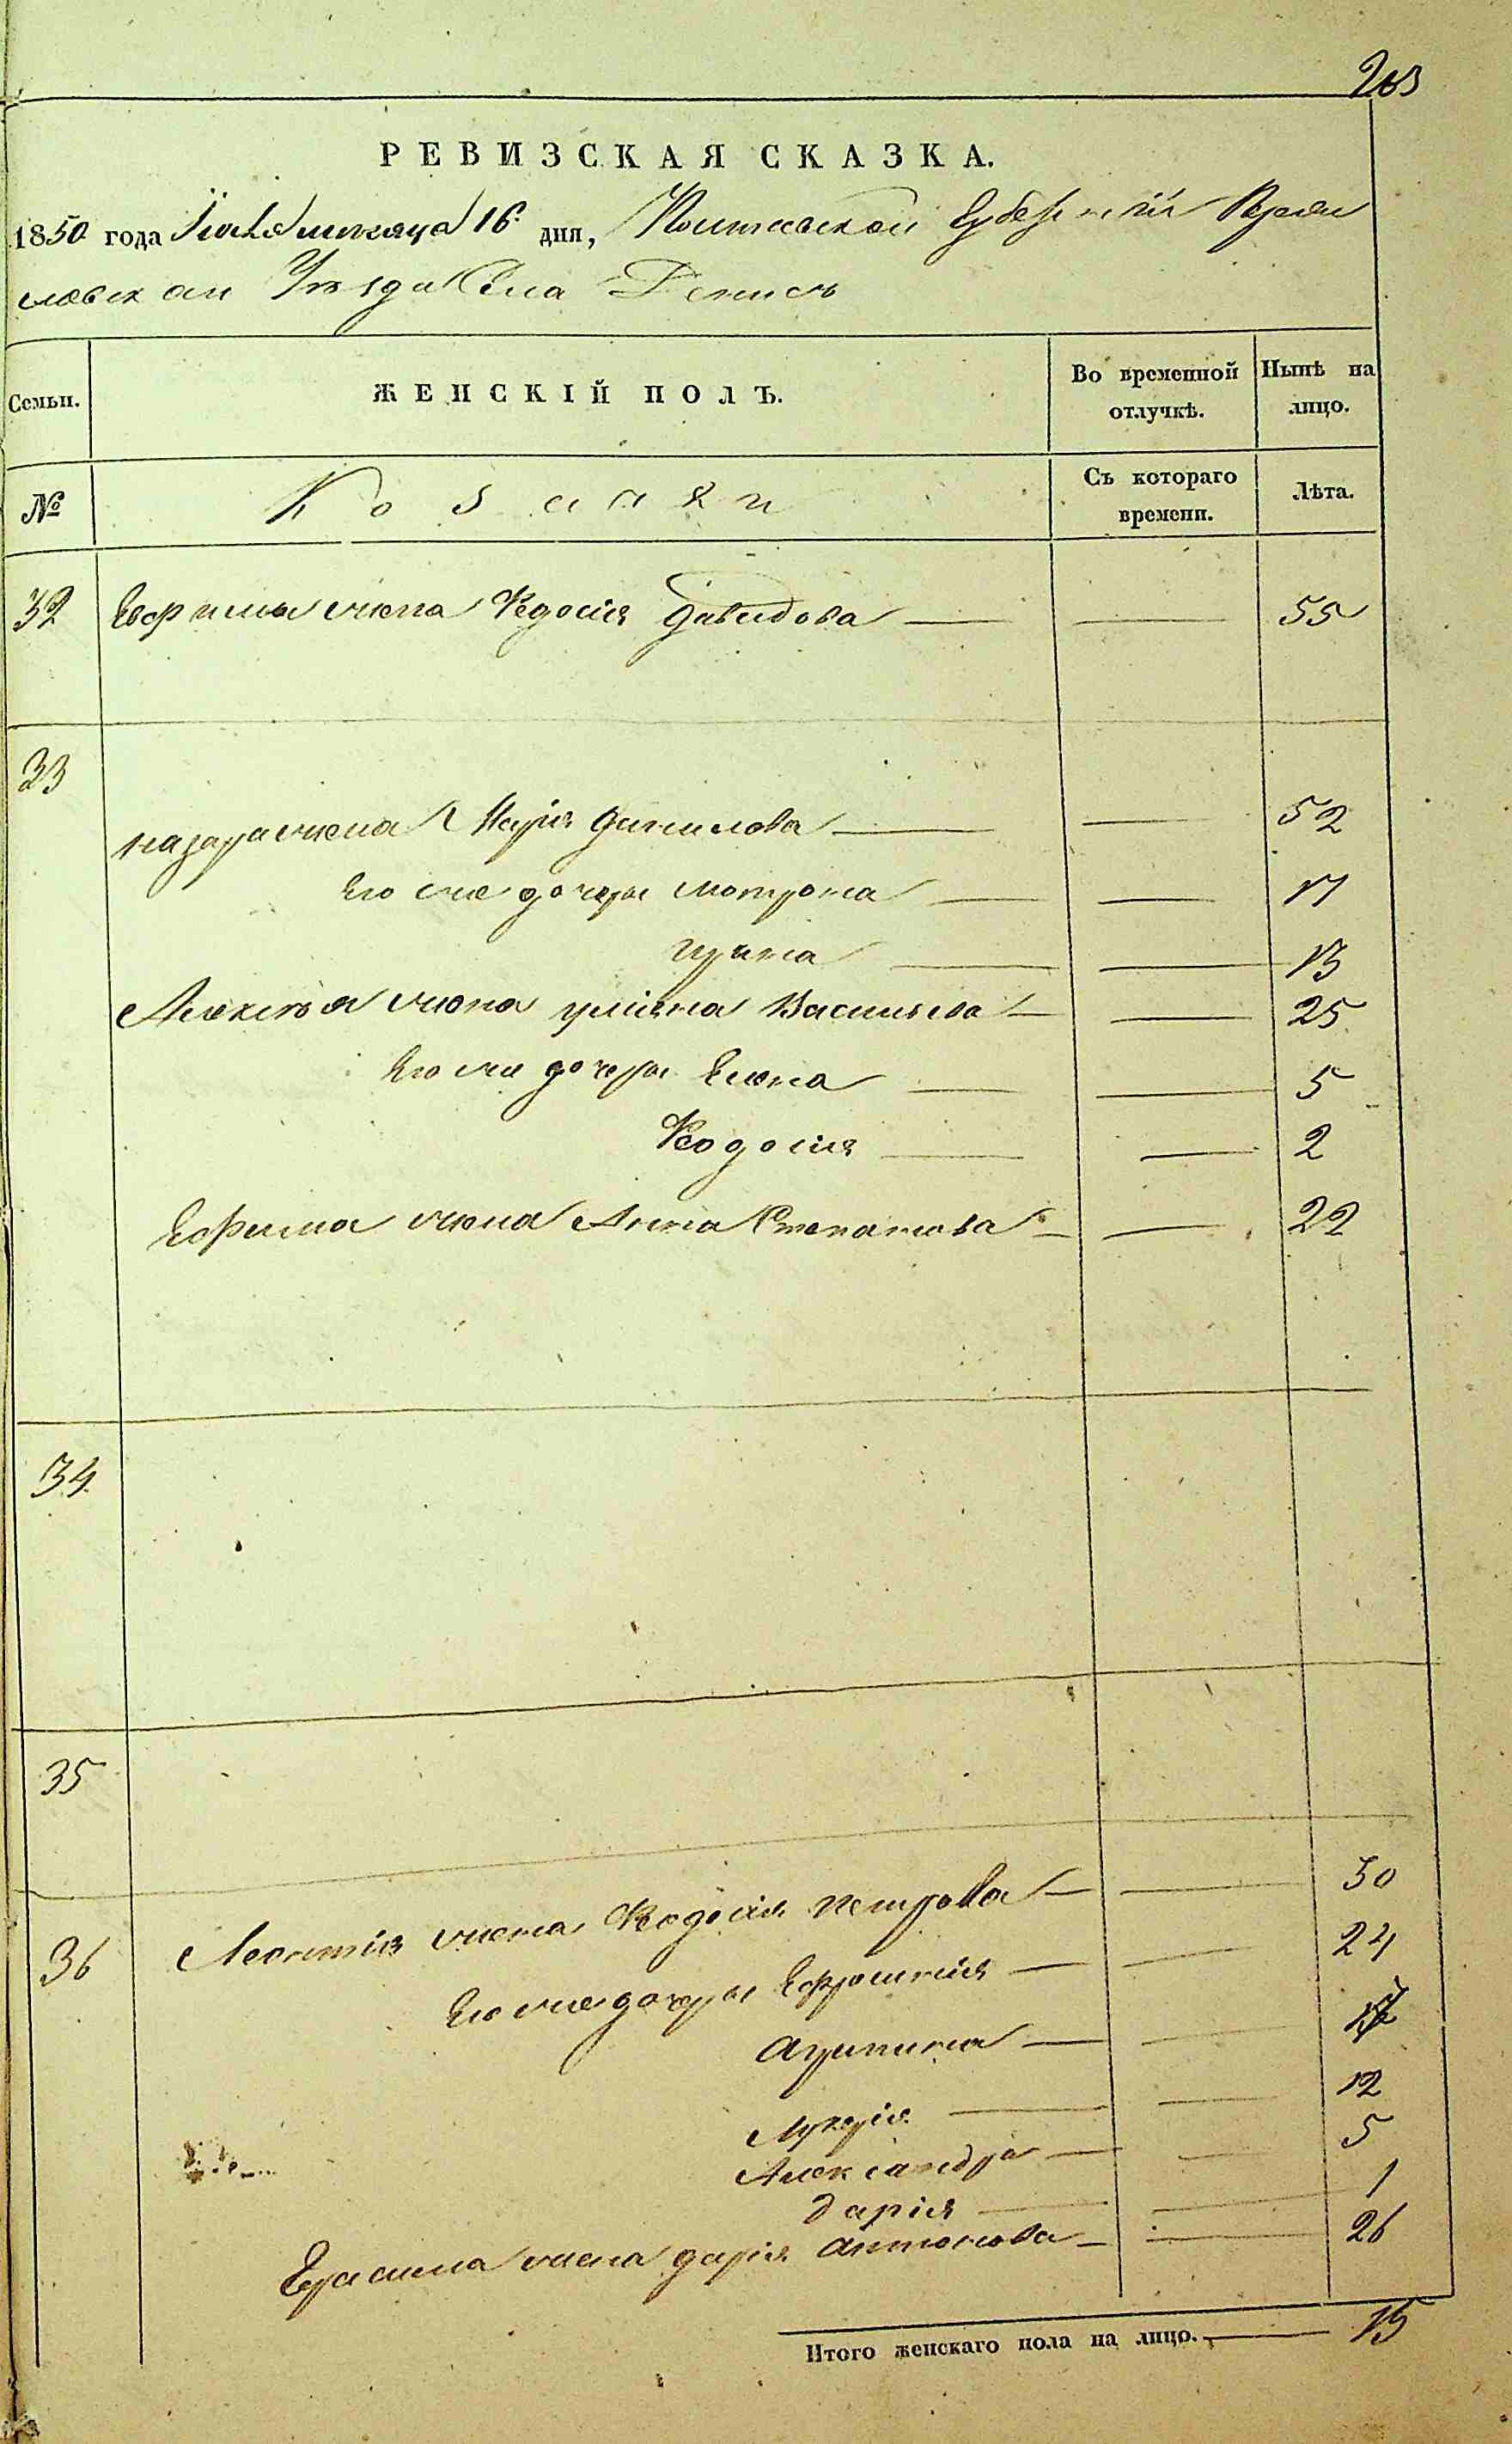 203
РЕВИЗСКАЯ СКАЗКА.
1850 года Іюля месяца 16 дня, Полтавской Губерніи Переяс
лавскаи Уезда Села Денисъ
Семьи. ЖЕНСКІЙ ПОЛЪ. Во временной отлучкѣ. Нынѣ на лицо.
№ Козачки Съ котораго времени. Лѣта.
32 Евфима жена Феодосія Давидова — — 55
33
Назара жена Марія Данилова — — 52
Его же дочери Мотрона — — 17
Ирина — — 13
Алексѣя жена Уліяна Васильева — — 25
Его же дочери Елена — — 5
Феодосія — — 2
Ефима жена Анна Степанова — — 22
34
35
36 Леонтія жена Феодосія Петрова — — 50
Его же дочери Ефросинія — — 24
Агрипина — —
Лукерія — — 12
Александра — — 5
Дарія — — 1
Герасима жена Дарія Антонова — — 26
Итого женскаго пола на лицо. — 15